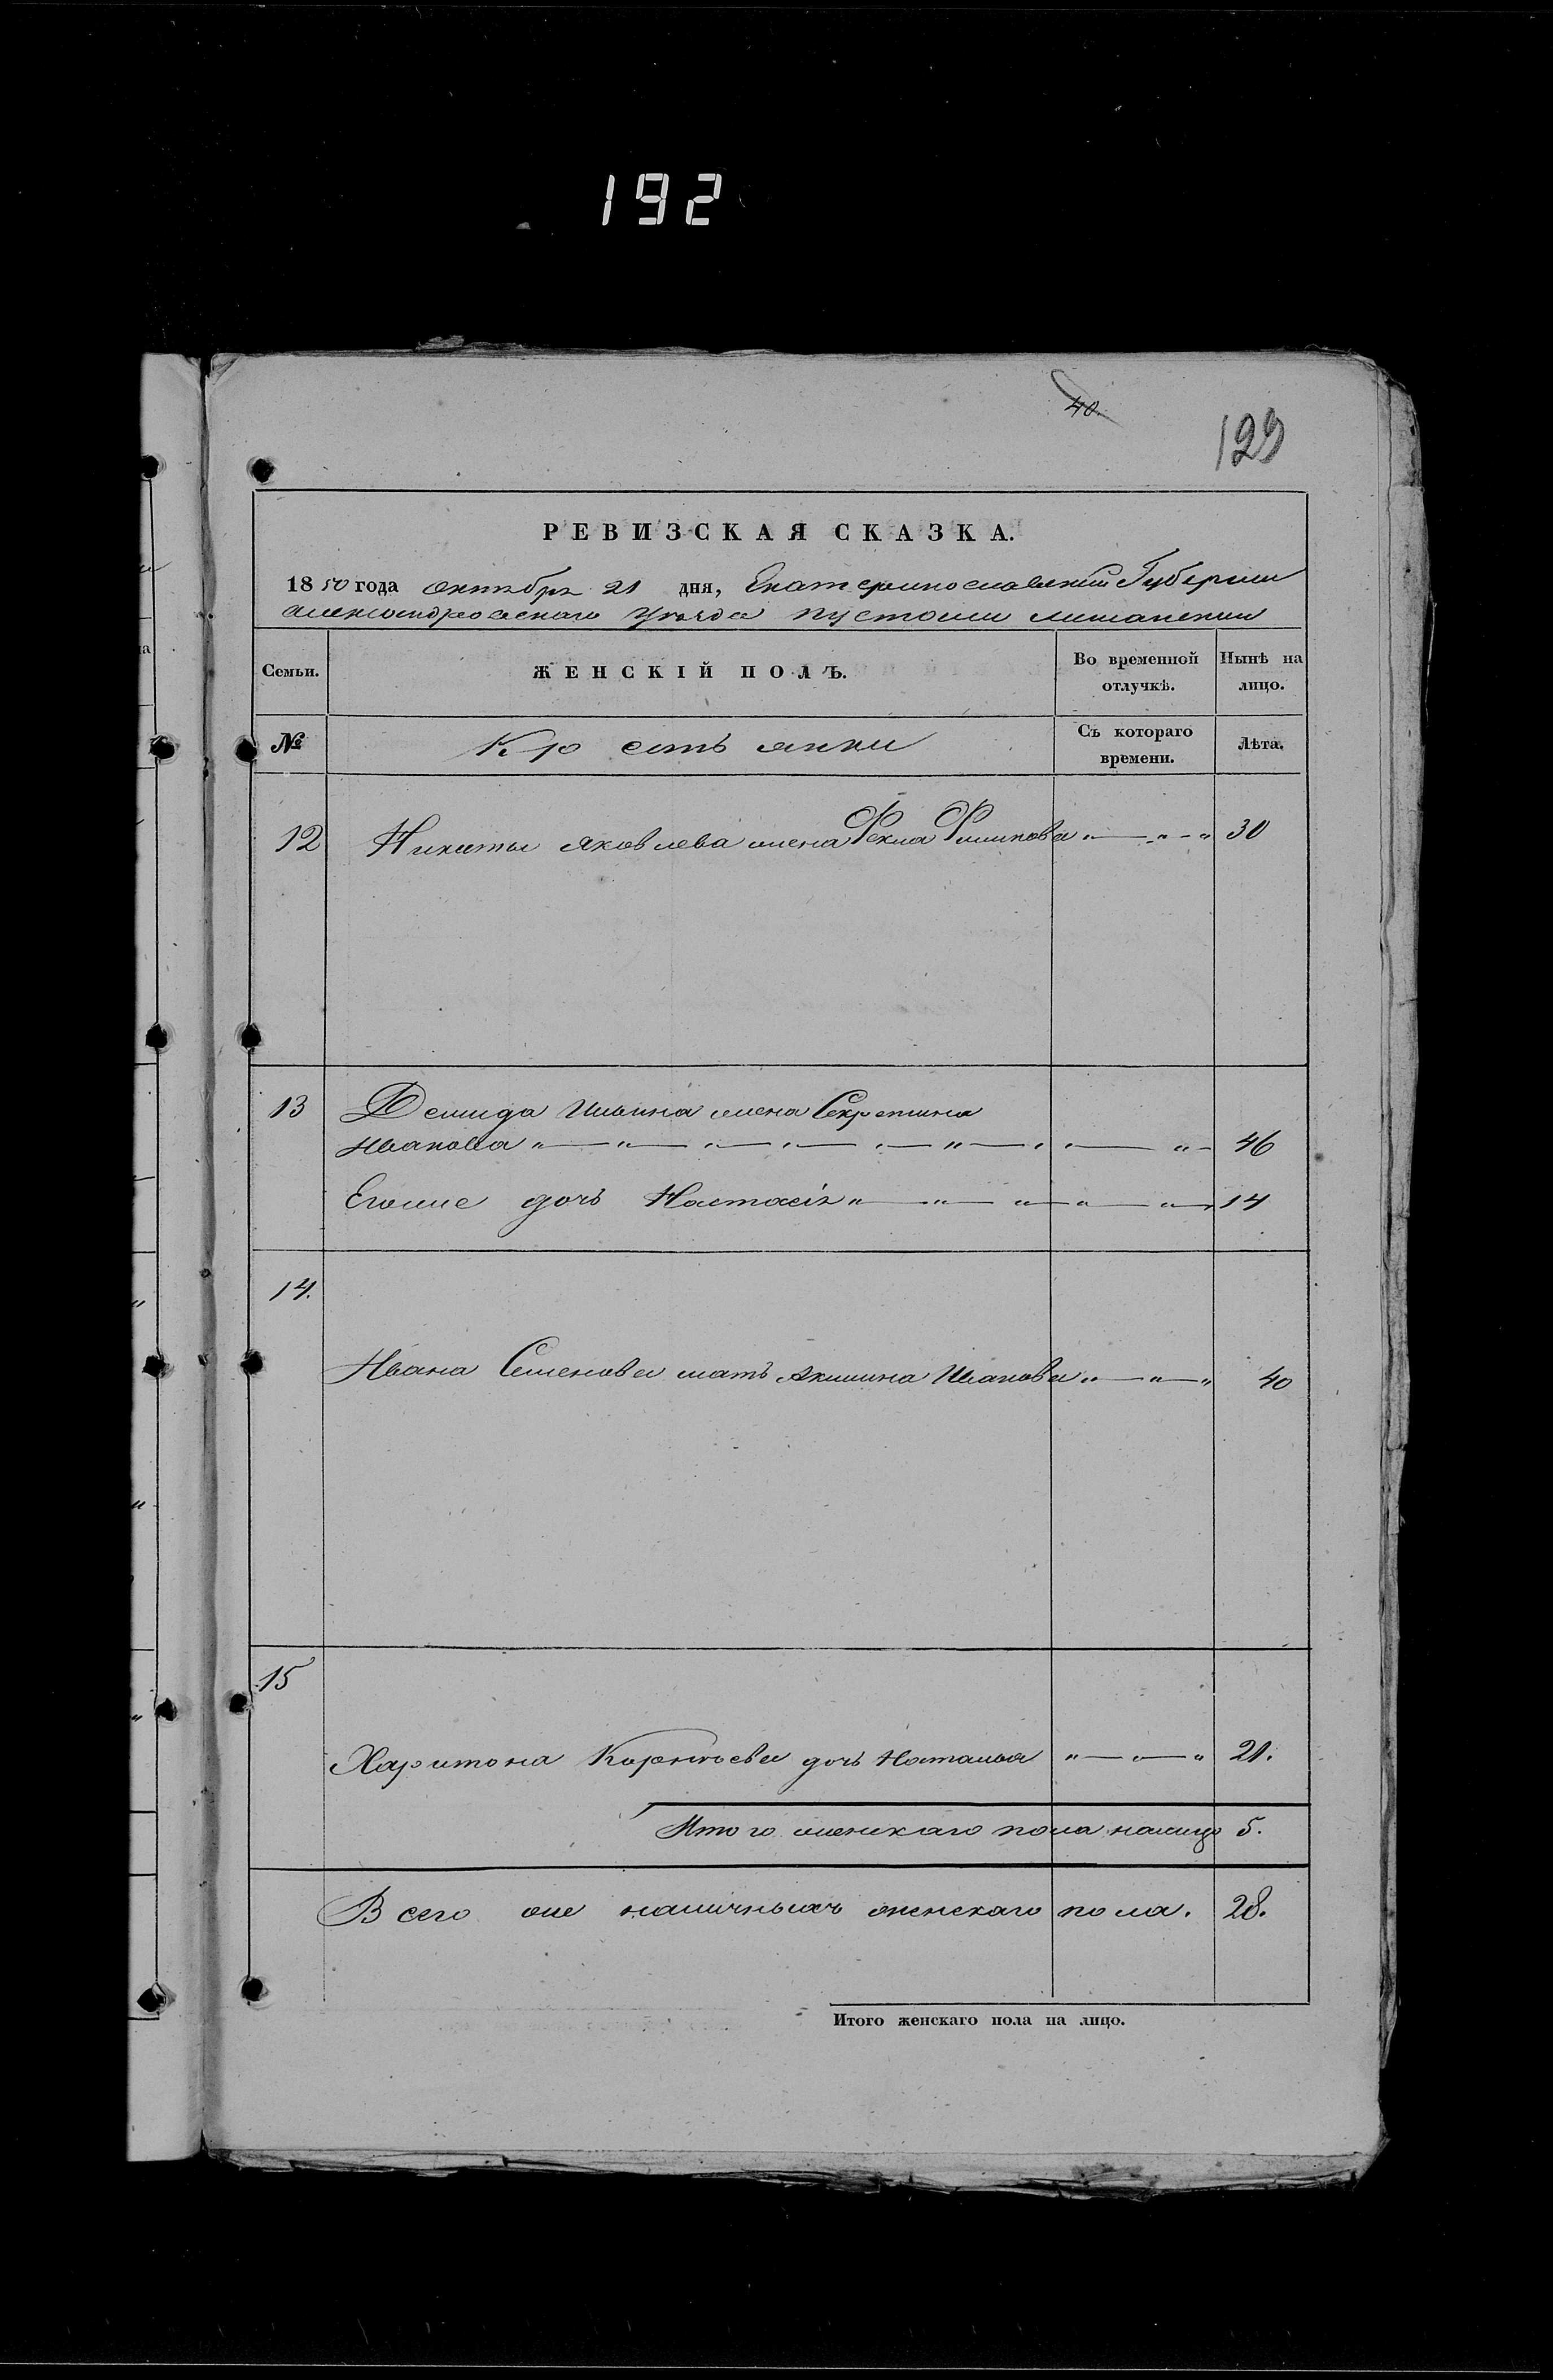 192
40.
129
РЕВИЗСКАЯ СКАЗКА.
1850 года октября 21 дня, Екатеринославской Губернии
Александровскаго Уезда пустоши
Семьи. ЖЕНСКІЙ ПОЛЪ. Во временной отлучкѣ. Нынѣ на лицо.
№ Крестьянки Съ котораго времени. Лѣта.
12 Никиты Яковлева жена Фекла Филипова " — " — " 30
13 Демида Ильина жена
Иванова " — " — " — " — " — " — " — " 46
Егоже дочь Настасія " — " — " — " — " 14
14.
Ивана Семенова мать Акилина Иванова " — " — " 40
15
Харитона дочь Наталья " — " — " 21.
Итого женскаго пола налицо 5.
Всего же наличныхъ женскаго пола. 28.
Итого женскаго пола на лицо.